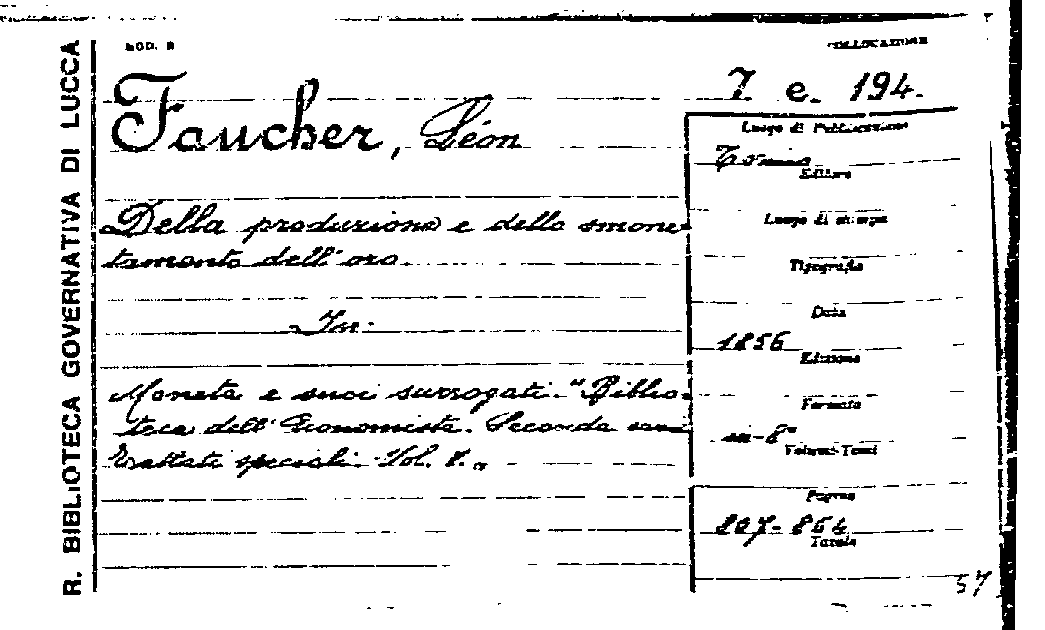 R. BIBLIOTECA GOVERNATIVA DI LUCCA
MOD. B
COLLOCAZIONE
7. e. 194.
Faucher, Léon
Luogo di Pubblicazione
Torino
Editore
Della produzione e dello smone-
tamento dell'oro.
Luogo di stampa
Tipografia
Data
In:
1856
Edizione
Moneta e suoi surrogati. "Biblio-
teca dell'Economista. Seconda serie
Trattati speciali. Vol.
Formato
in-8°
Volumi-Tomi
Pagine
807-864
Tavole
57